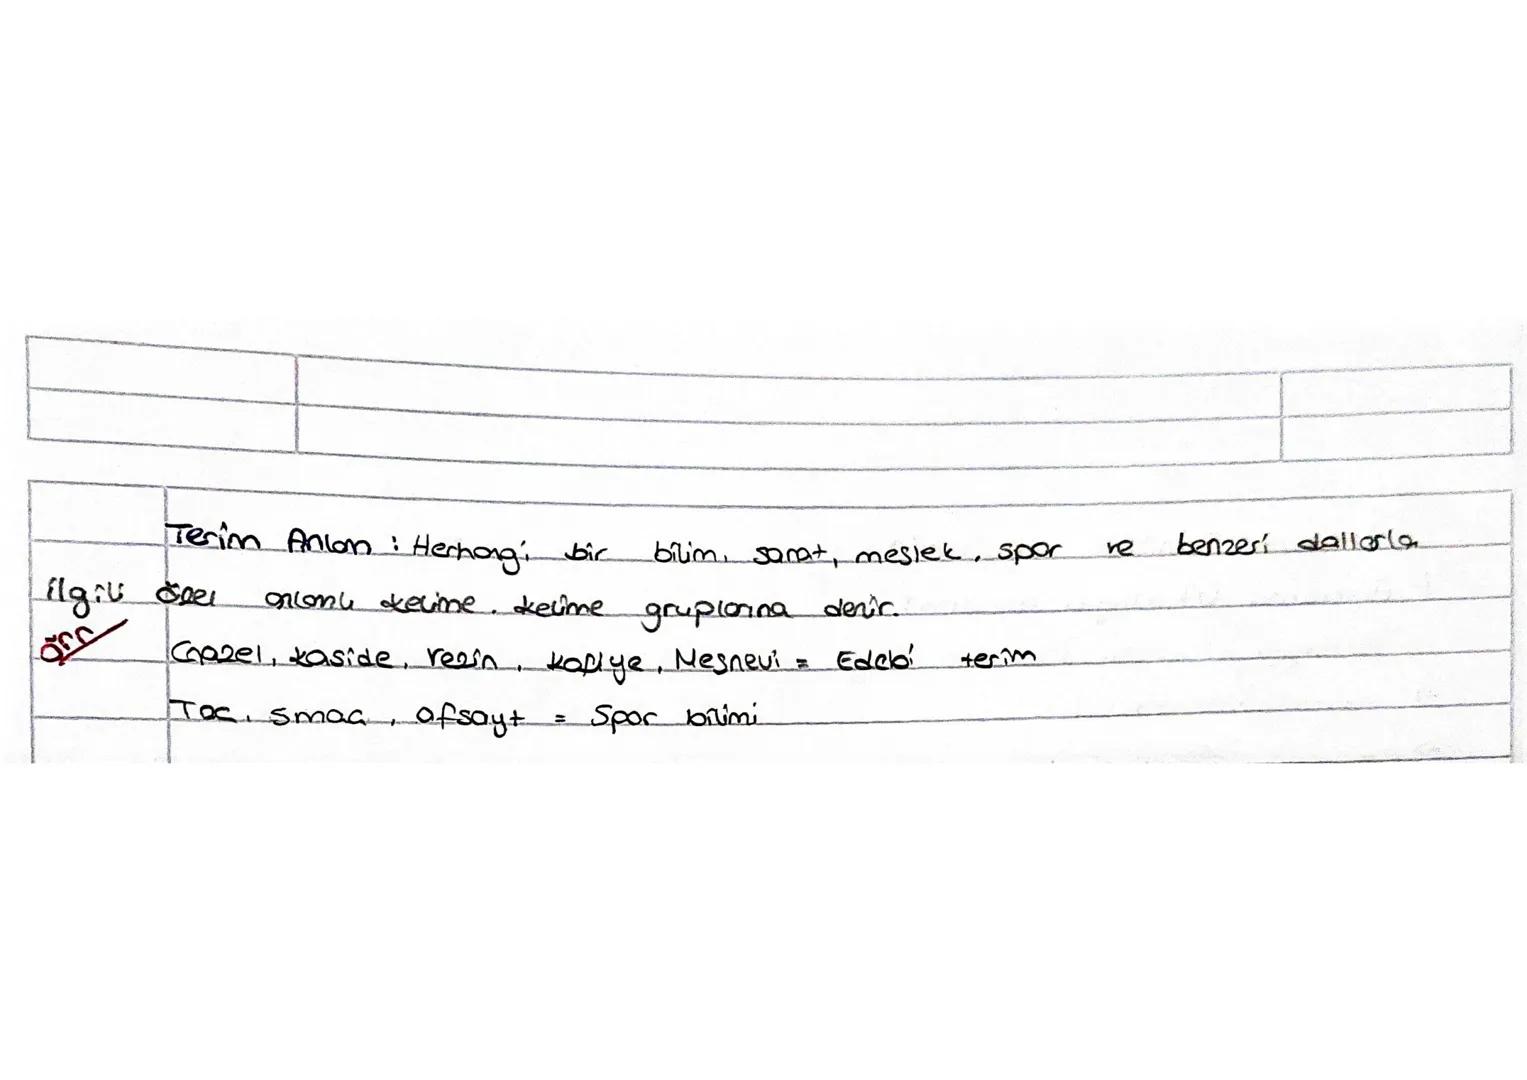 Terim Anlam : Herhangi bir bilim, sanat, meslek, spor ve benzeri dallarla
ilgili özel anlamlı kelime, kelime gruplarına denir.
Örr
Gazel, kaside, resim, kafiye, Mesnevi = Edebi terim
Taç, smaç, ofsayt = Spor bilimi